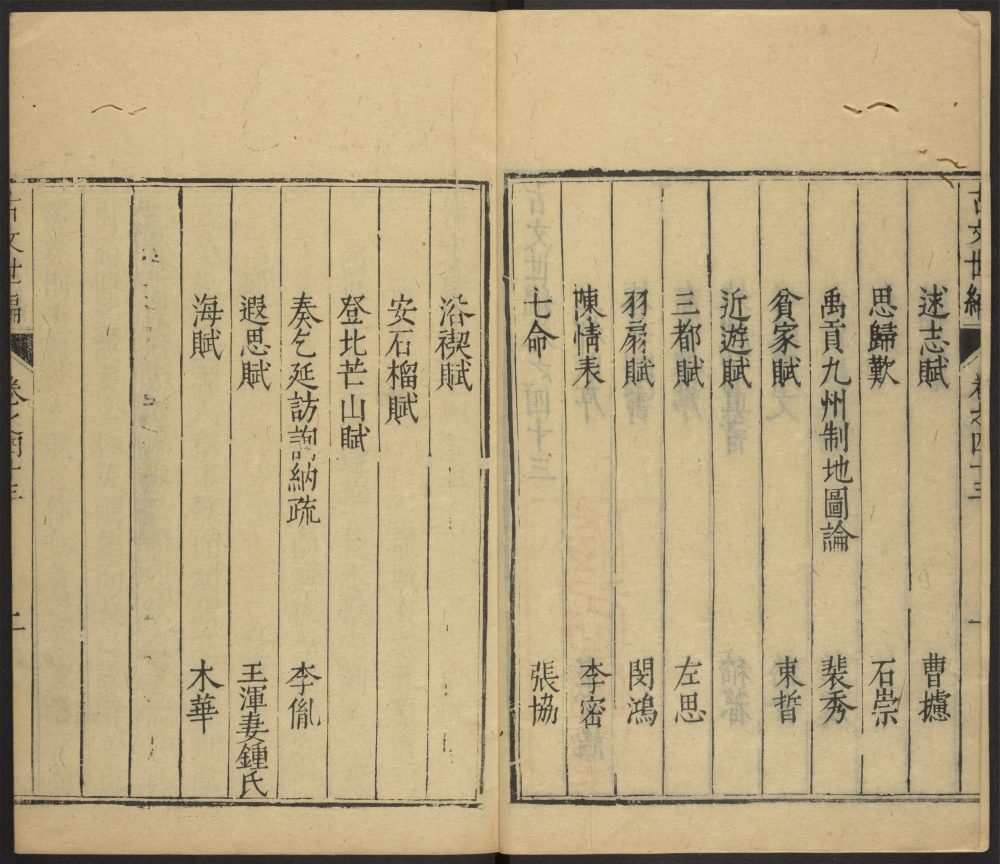 古文世編
卷之四十三
一
述志賦 曹攄
思歸歎 石崇
禹貢九州制地圖論 裴秀
貧家賦 束晳
近遊賦
三都賦 左思
羽扇賦 閔鴻
陳情表 李密
七命 張協
洛禊賦
安石榴賦
登北芒山賦
奏乞延訪詢納疏 李胤
遐思賦 王渾妻鍾氏
海賦 木華
古文世編
卷之四十三
二